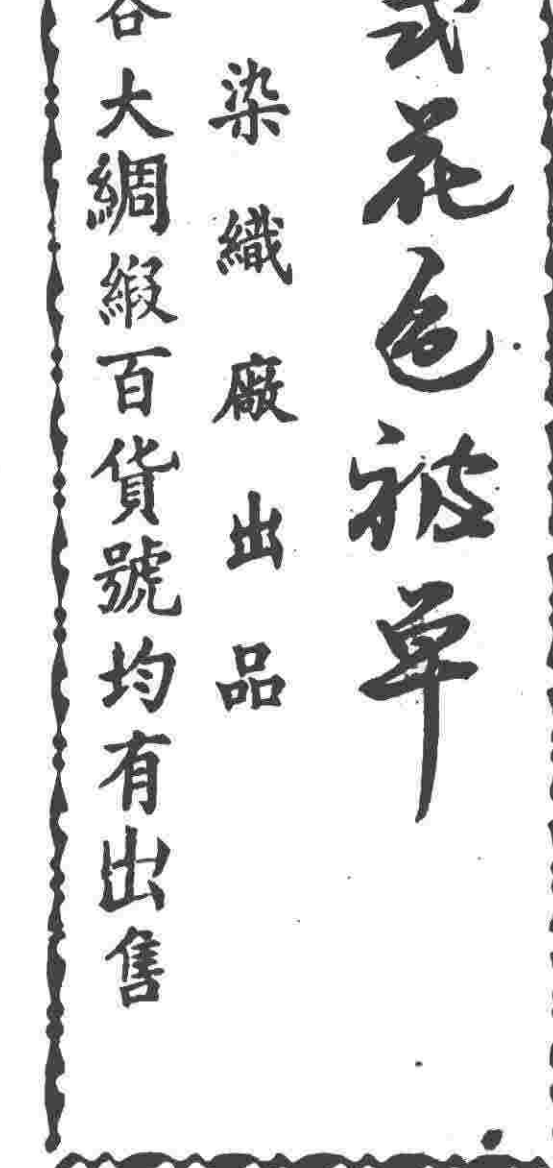 式花色被单
染織廠出品
各大綢緞百貨號均有出售